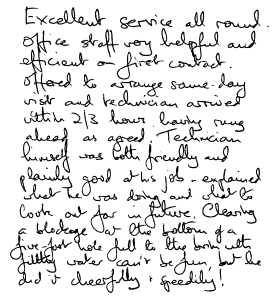 Excellent service all round -
office staff very helpful and
efficient on first contact.
Offered to arrange same-day
visit and technician arrived
within 2/3 hours having rung
ahead as agreed. Technician
himself was both friendly and
plainly good at his job - explained
what he was doing and what to
look out for in future. Clearing
a blockage at the bottom of a
five-foot hole full to the brim with
filthy water can't be fun, but he
did it cheerfully & speedily!